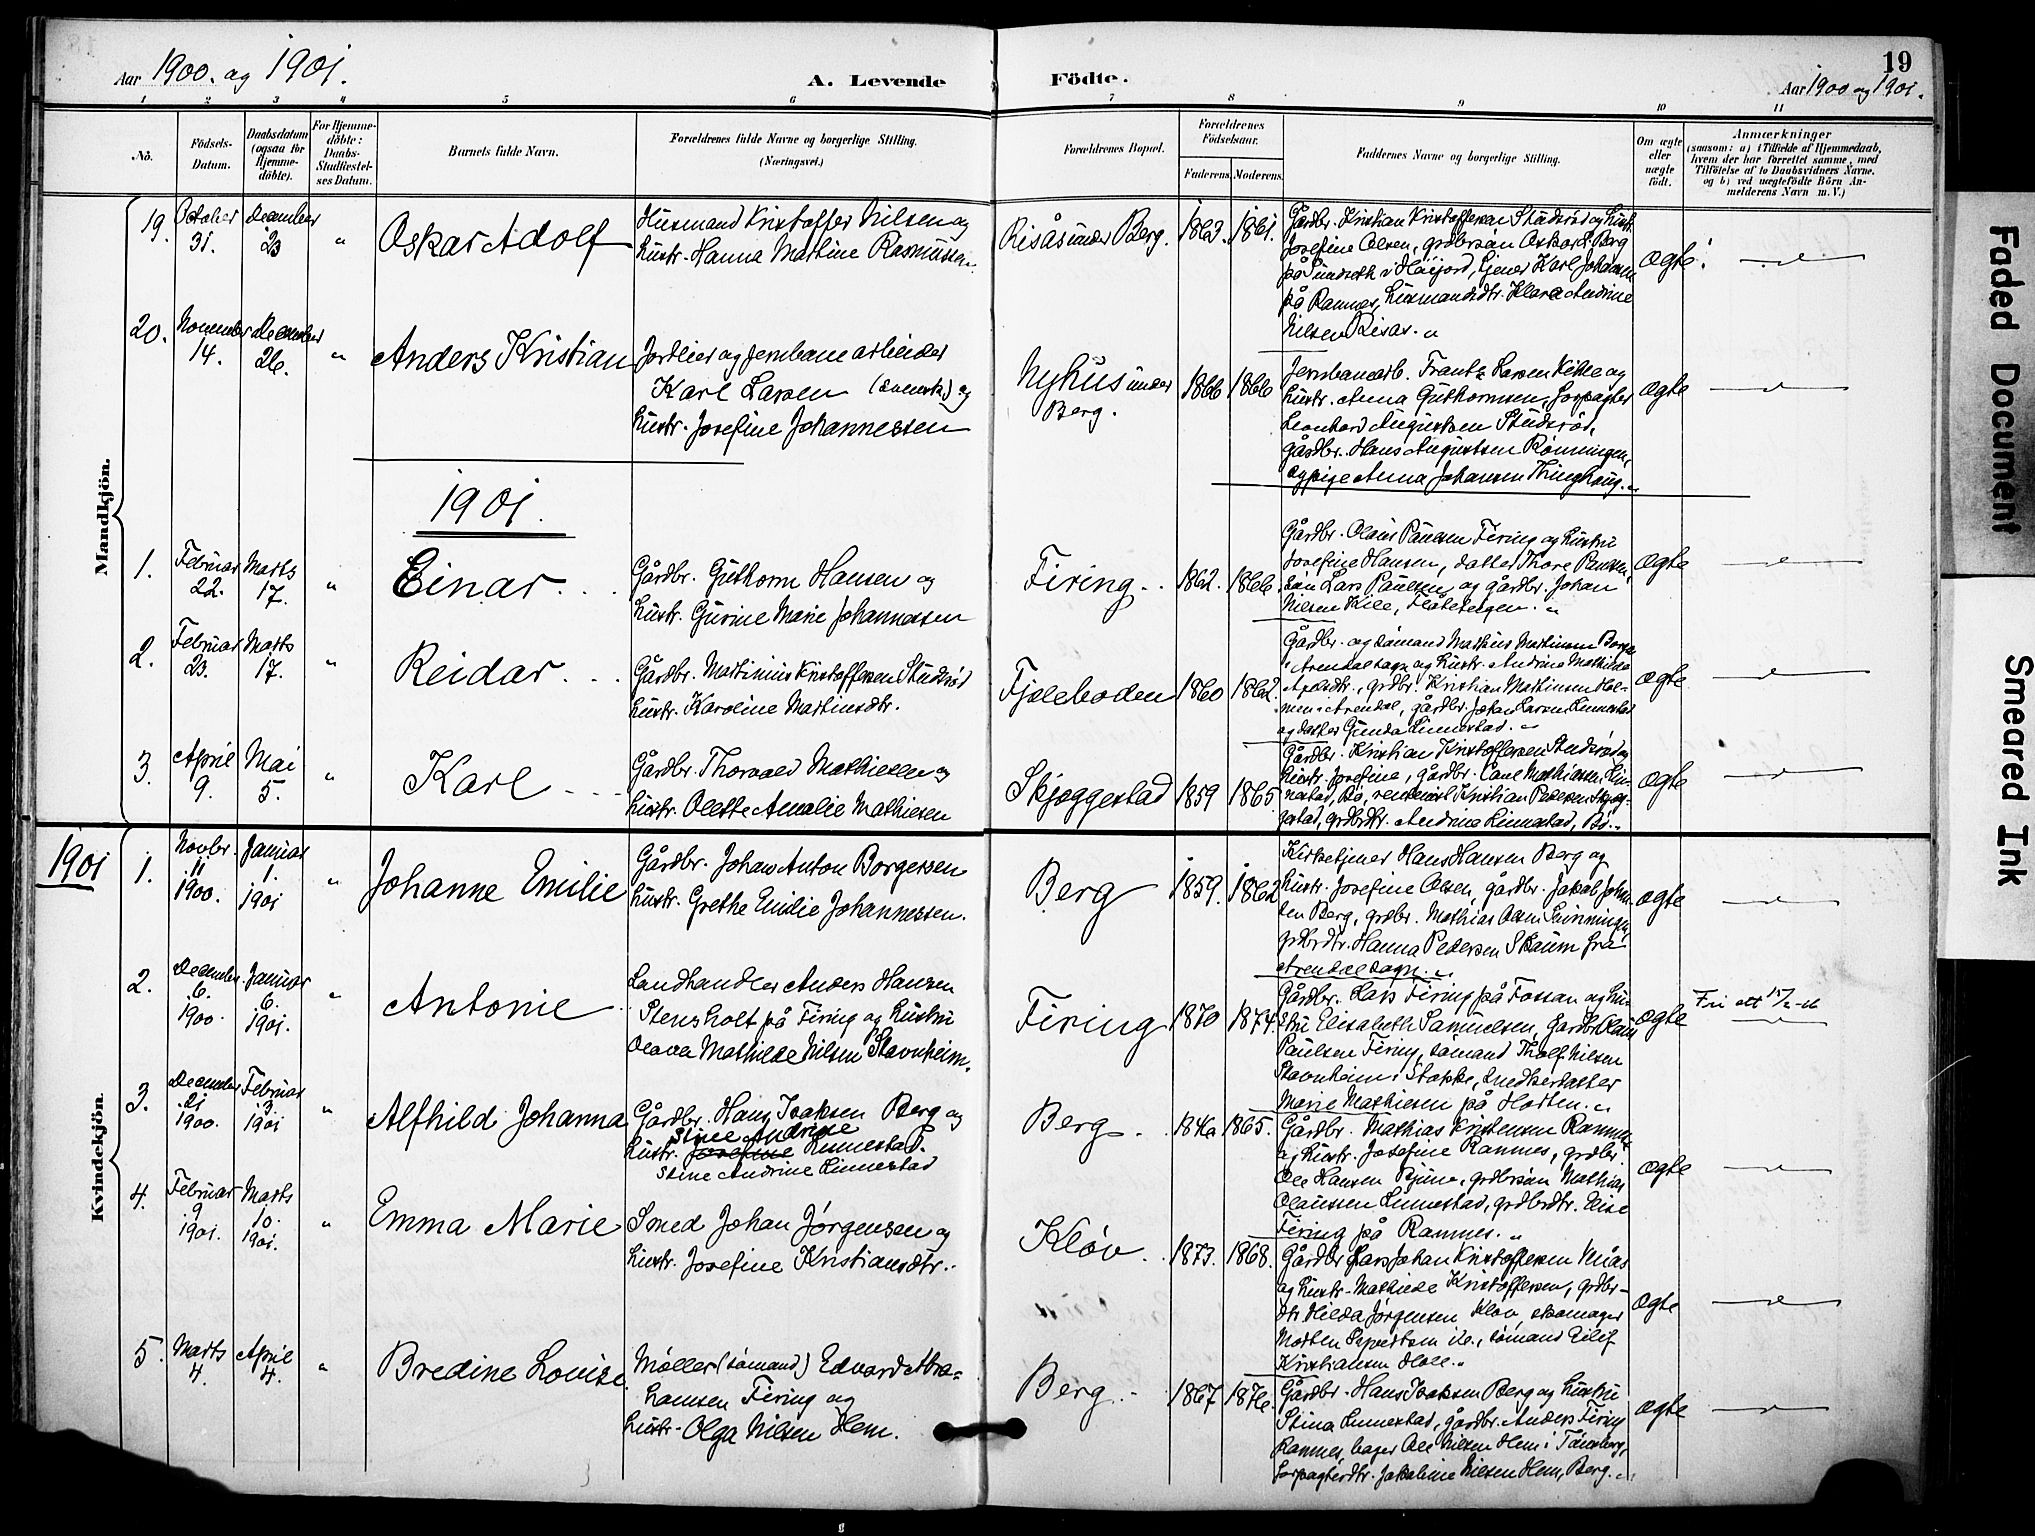 19
Aar 1900. og 1901.
A. Levende
Födte.
Aar 1900 og 1901.
1 2 3 4 5 6 7 8 9 10 11
No.
Födsels-
Datum.
Daabsdatum
(ogsaa for
Hjemme-
döbte).
For Hjemme-
döbte:
Daabs-
Stadfæstel-
ses Datum.
Barnets fulde Navn.
Forældrenes fulde Navne og borgerlige Stilling.
(Næringsvei.)
Forældrenes Bopæl.
Forældrenes
Födselsaar.
Faderens.
Moderens.
Faddernes Navne og borgerlige Stilling.
Om ægte
eller
uægte
födt.
Anmærkninger
(saasom: a) i Tilfælde af Hjemmedaab,
hvem der har forrettet samme, med
Tilföielse af to Daabsvidners Navne.
og b) ved uægtefödte Börn An-
melderens Navn m. V.)
Mandkjön.
19. October 31. December 23 " Oskar Adolf
Husmand Kristoffer Nilsen og
hustr. Hanna Mathine Rasmussen.
Risås under Berg. 1863. 1861.
Gårdbr. Kristian Kristoffersen Studsrød og hustr.
Josefine Olsen, grdbrsøn Oskar L. Berg
på Sundseth i Høijord, tjener Karl Johansen
på Ramnes, husmandsdtr. Klara Andrine
Nilsen Risås. "
Ægte.
20. November 14. December 26. " Anders Kristian
Jordleier og jernbanearbeider
Karl Larsen (svensk) og
hustr. Josefine Johannessen
Nyhus under
Berg. 1866 1866
Jernbanearb. Frantz Larsen Kikke og
hustr. Anna Guthormsen, forpagter
Leonhard Augustsen Studsrød,
gårdbr. Hans Augustsen Rønningen,
og pige Anna Johansen Thinghaug. "
Ægte
1901.
1. Februar 22. Marts 17. " Einar
Gårdbr. Guthorm Hansen og
hustr. Gurine Marie Johannessen
Firing. 1862. 1866.
Gårdbr. Olaus Paulsen Firing og hustru
Josefine Hansen, datter Thora Paulsen,
søn Lars Paulsen og gårdbr. Johan
Nilsen Kile, Flåtetangen. "
Ægte
2. Februar 23. Marts 17. " Reidar
Gårdbr. Martinius Kristoffersen Studsrød
hustr. Karoline Martinsdtr.
Fjæleboden 1860 1862.
Gårdbr. og sømand Mathias Martinsen
i Arendal sogn og hustr. Andrine Mathilde
grdbr. Kristian Martinsen Hol-
men i Arendal, gårdbr. Johan Larsen Linnestad
og datter Gunda Linnestad. "
Ægte
3. April 9. Mai 5. " Karl
Gårdbr. Thorvald Mathiesen og
hustr. Olette Amalie Mathiesen
Skjæggestad 1859 1865
Gårdbr. Kristian Kristoffersen Studsrød og
hustr. Josefine, gårdbr. Carl Mathiesen Lin-
nestad, Bø, Kristian Pedersen Skjæg-
gestad, grdbrdtr. Andrine Linnestad, Bø. "
Ægte
1901
Kvindekjön.
1. Novbr. 11 1900. Januar 1. 1901 " Johanne Emilie
Gårdbr. Johan Anton Borgersen
hustr. Grethe Emilie Johannessen.
Berg 1859. 1862
Kirketjener Hans Hansen Berg og
hustr. Josefine Olsen, gårdbr. Jakob Johan-
sen Berg, grdbr. Mathias Olsen
grdbrdtr. Hanna Pedersen Skaum fra
Arendal sogn. "
Ægte
2. December 6. 1900 Januar 6. 1901. " Antonie
Landhandler Anders Hansen
Stensholt på Firing og hustru
Olava Mathilde Nilsen Stavnheim.
Firing 1870 1874.
Gårdbr. Lars Firing på Fossan og hu-
stru Elisabeth Samuelsen, gårdbr. Olaus
Paulsen Firing, sømand Tholf Nilsen
Stavnheim i Stokke, snedkerdatter
Marie Mathiesen på Horten. "
Ægte
3. December 21 1900. Februar 3. 1901 " Alfhild Johanna
Gårdbr. Hans Isaksen Berg og
Stine Andrine
hustr. Josefine Linnestad.
Stine Andrine Linnestad
Berg. 1865.
Gårdbr. Mathias Kristensen Ramnes
og hustr. Josefine Ramnes, grdbr.
Ole Hansen Bjune, grdbrsøn Mathias
Olaussen Linnestad, grdbrdtr. Elise
Firing på Ramnes. "
Ægte
4. Februar 9 1901. Marts 10. 1901. " Emma Marie
Smed Johan Jørgensen og
hustr. Josefine Kristiansdtr.
Kløv. 1873. 1868.
Gårdbr. Lars Johan Kristoffersen
og hustr. Mathilde Kristoffersen, grdbr-
dtr. Hilda Jørgensen Kløv, skomager
Morten Sivertsen ib., sømand Eilif
Kristiansen Holt. "
Ægte
5. Marts 4. April 4. " Bredine Louise
Møller (sømand) Edvard Abra-
hamsen Firing og
hustr. Olga Nilsen Hem.
Berg. 1867 1876.
Gårdbr. Hans Isaksen Berg og hustru
Stina Linnestad, gårdbr. Anders Firing
Ramnes, bager Ole Nilsen Hem i Tønsberg,
forpagterdtr. Jakobine Nilsen Hem, Berg. "
Ægte
Faded Document
Smeared Ink